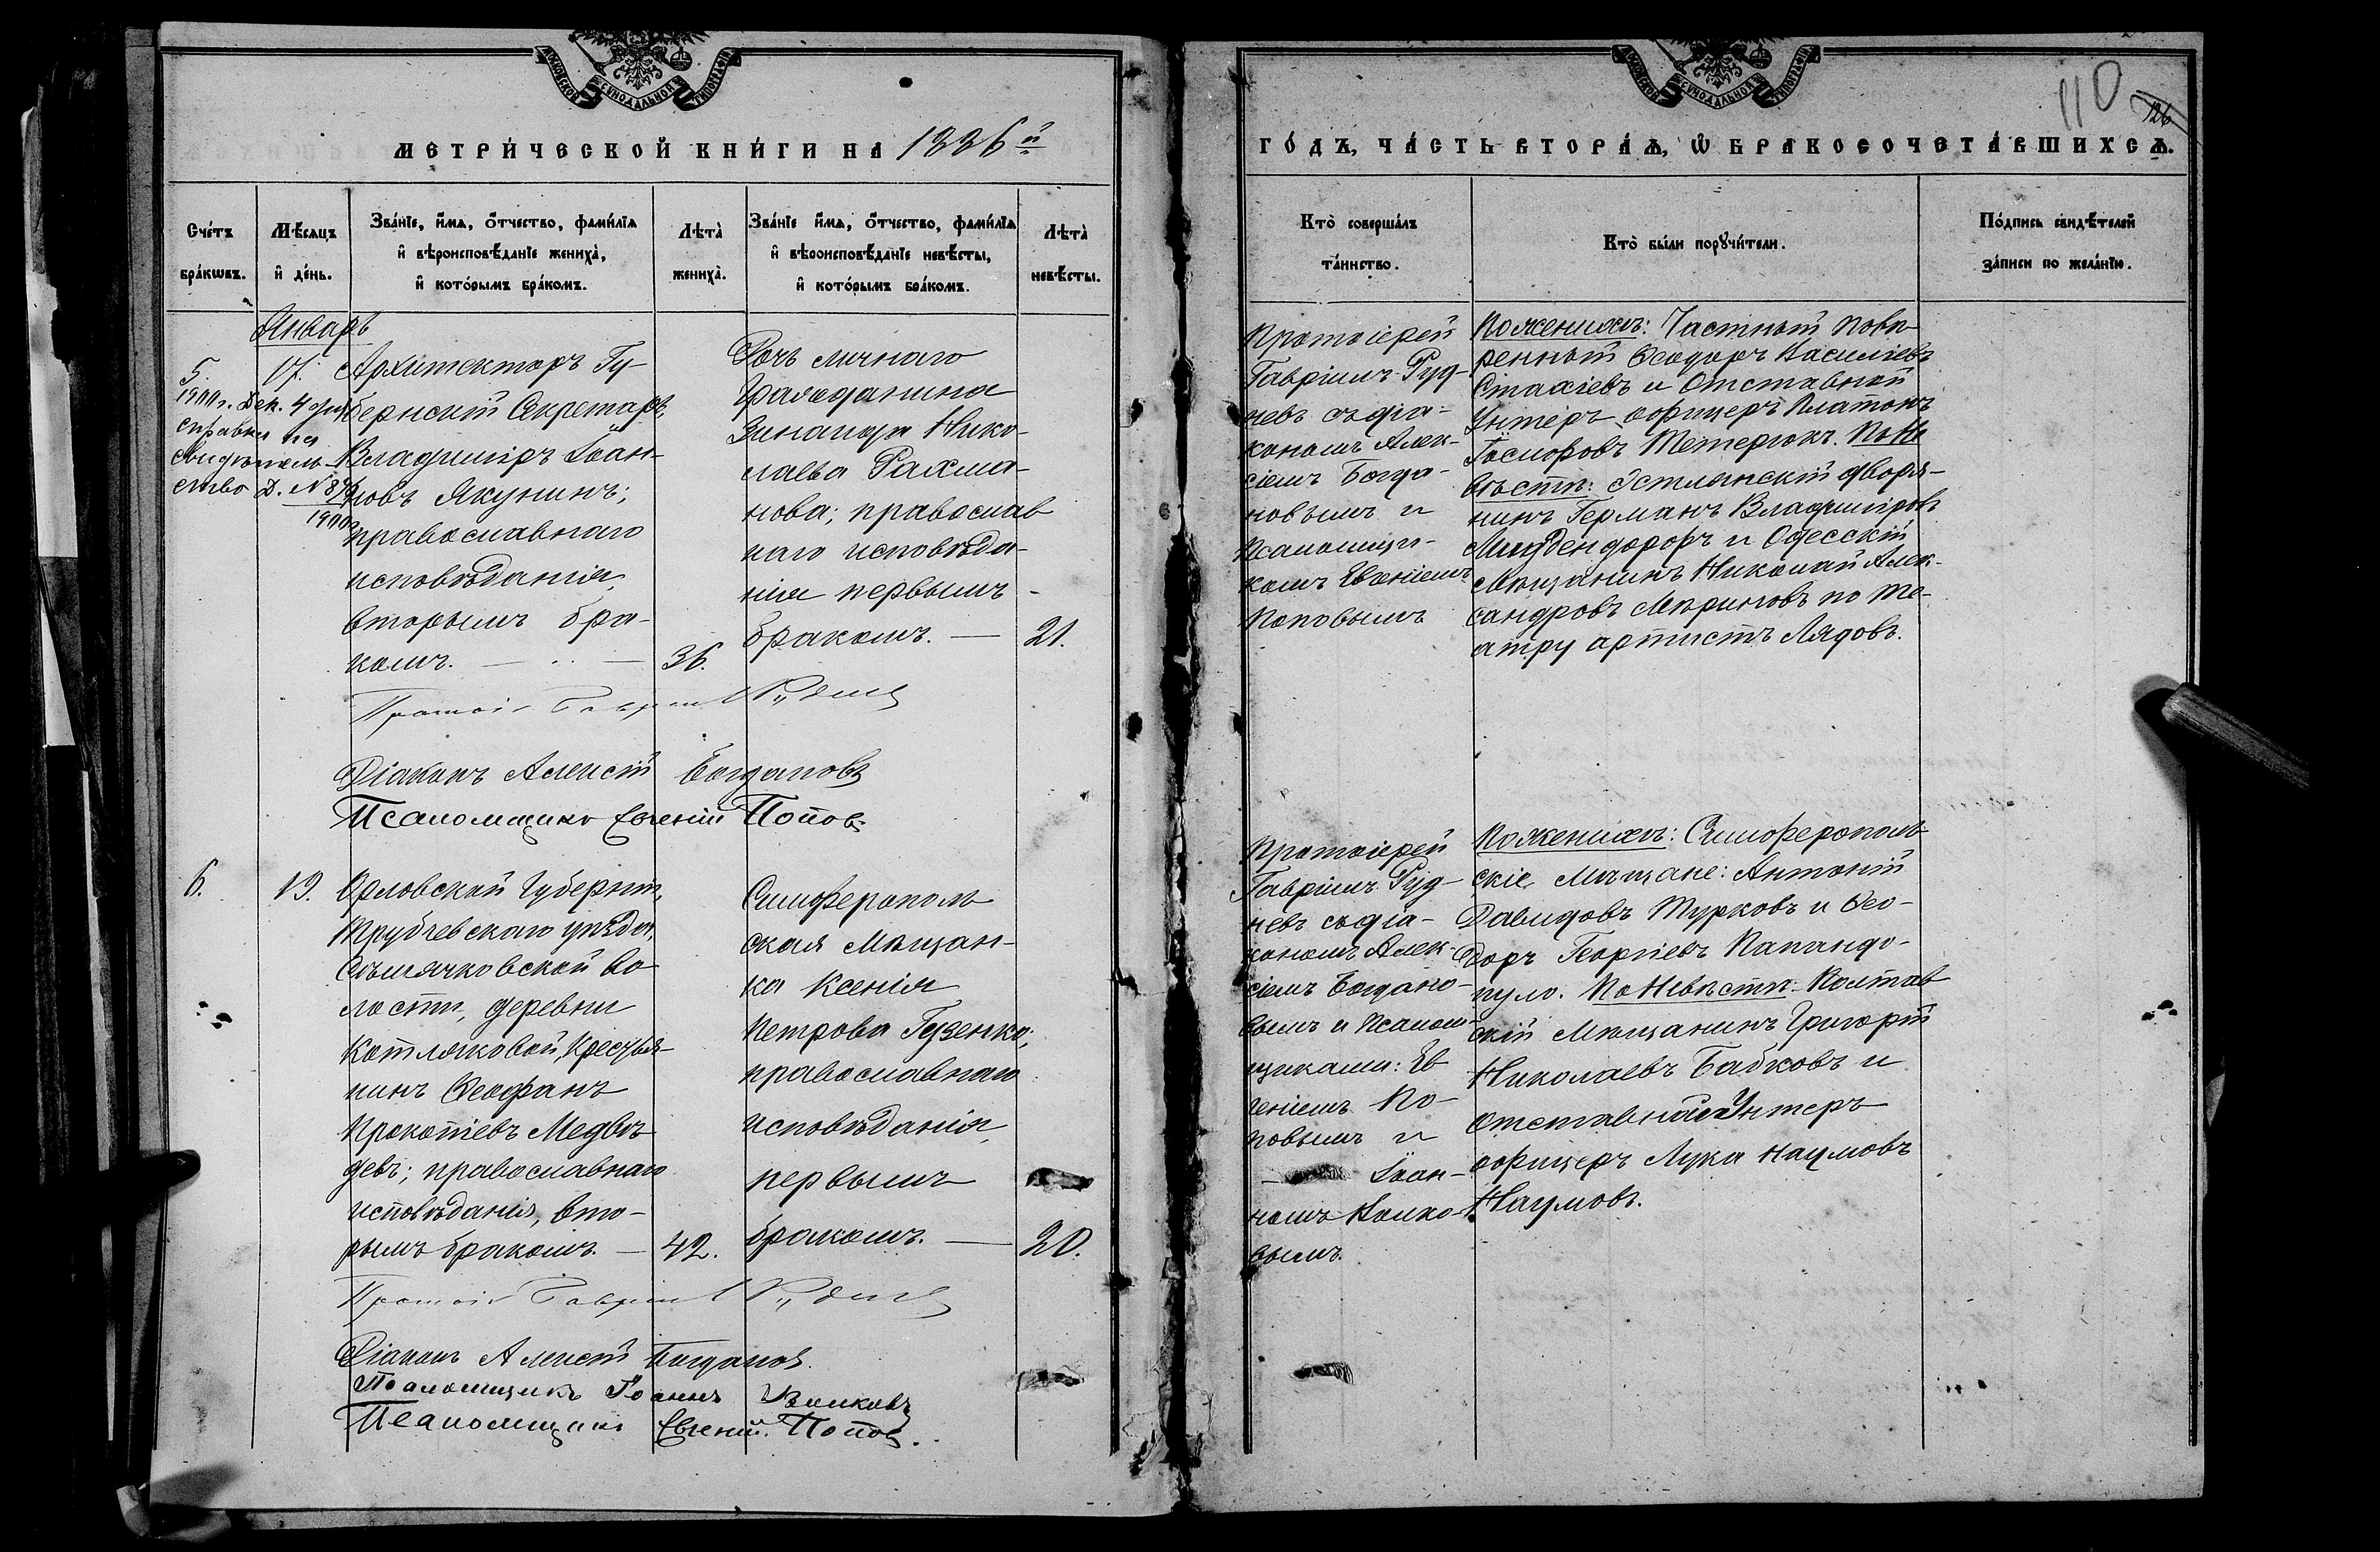 МОСКОВСКОЙ СѴНОДАЛЬНОЙ ТИПОГРАФІИ
МЕТРИ́ЧЕСКОЙ КНИ́ГИ НА 1886 й
Сче́тъ бра́кωвъ.
Мѣ́сяцъ и҆ де́нь.
Зва́нїе, и҆́мѧ, ѻ҆́тчество, фами́лїѧ
и҆ вѣроисповѣ́данїе жениха̀,
и҆ кото́рымъ бра́комъ.
Лѣта̀ жениха̀.
Зва́нїе и҆́мѧ, ѻ҆́тчество, фами́лїѧ
и҆ вѣроисповѣ́данїе невѣ́сты,
и҆ кото́рымъ бра́комъ.
Лѣта̀ невѣ́сты.
Январь
5.
17.
1911 г. Дек. 4 дня
справка на
свидѣтель-
ство Д. №
1911 г.
Архитекторъ Гу-
бернскій Секретарь,
Владиміръ Іоан-
новъ Якунинъ;
православнаго
исповѣданія,
вторымъ бра-
комъ. —
36.
Дочь личнаго
Гражданина
Зинаида Нико-
лаева Рахма-
нова; православ
наго исповѣда-
нія первымъ
бракомъ. —
21.
Протоіе Гавріилъ Руднев
Діаконъ Алексій Богдановъ
Псаломщикъ Евгеній Поповъ
6.
19.
Орловской Губерніи,
Трубчевскаго уѣзда,
Селячковской во
лости, деревни
Котляковой, Крестья-
нинъ Ѳеофанъ
Прокопіевъ Медвѣ-
девъ; православнаго
исповѣданія, вто-
рымъ бракомъ. —
42.
Симферополь
ская Мѣщан-
ка Ксенія
Петрова Гузенко;
православнаго
исповѣданія,
первымъ
бракомъ. —
20.
Протоіе Гавріилъ Руднев
Діаконъ Алексій Богданов.
Псаломщикъ Іоаннъ Волковъ
Псаломщикъ Евгеній Поповъ.
МОСКОВСКОЙ СѴНОДАЛЬНОЙ ТИПОГРАФІИ
110
126
ГО́ДЪ, ЧА́СТЬ ВТОРА́Ѧ, Ѡ҆ БРАКОСОЧЕТА́ВШИХСѦ.
Кто̀ соверша́лъ та́инство.
Кто̀ бы́ли порꙋчи́тели.
По́дпись свидѣ́телей
за́писи по жела́нїю.
Протоіерей
Гавріилъ Руд-
невъ съ діа-
кономъ Алек-
сіемъ Богда-
новымъ и
Псаломщи-
комъ Евгеніемъ
Поповымъ
По женихѣ: Частный повѣ-
ренный Ѳеодоръ Василіевъ
Стахіевъ и Отставной
Унтеръ офицеръ Платонъ
Іосифовъ Тетерюкъ. По Не
вѣстѣ: Эстлянскій дворя-
нинъ Германъ Владиміровъ
Миддендорфъ и Одесскій
Мѣщанинъ Николай Алек-
сандровъ Мѣриновъ по те-
атру артистъ Лядовъ.
Протоіерей
Гавріилъ Руд-
невъ съ діа-
кономъ Алек-
сіемъ Богдано-
вымъ и Псалом-
щиками: Ев
геніемъ По-
повымъ и
Іоан-
номъ Волко-
вымъ.
По женихѣ: Симферополь
скіе Мѣщане: Антоній
Давидовъ Турковъ и Ѳео-
доръ Георгіевъ Папандо-
пуло. По Невѣстѣ: Полтав
скій Мѣщанинъ Григорій
Николаевъ Бабковъ и
отставной Унтеръ
офицеръ Лука Наумовъ
Наумовъ.